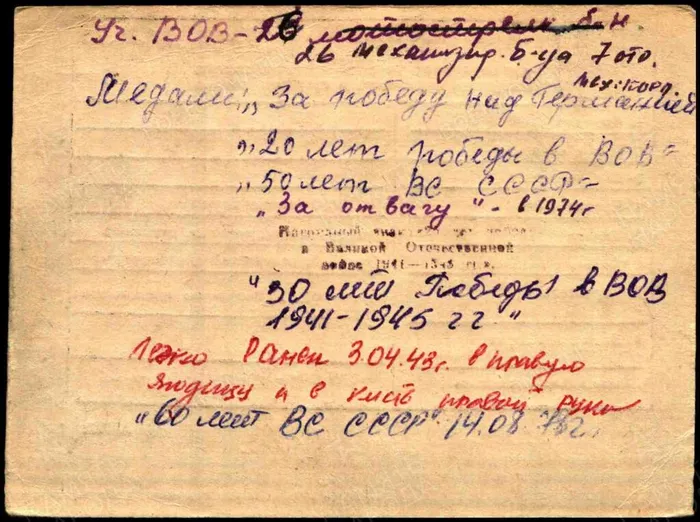 Уч. ВОВ - 26 мотострелк б-н
26 механизир. б-уа 7 отд.
мех. корп.
Медали: „За победу над Германией
„20 лет победы в ВОВ"
„50 лет ВС СССР"
„За отвагу" - в 1974г
Нагрудный знак 25 лет победы
в Великой Отечественной
войне 1941—1945 гг.
"30 лет Победы в ВОВ
1941-1945 гг"
Легко ранен 3.04.43г. в правую
ягодицу и в кисть правой руки
„60 лет ВС СССР" 14.08.78г.